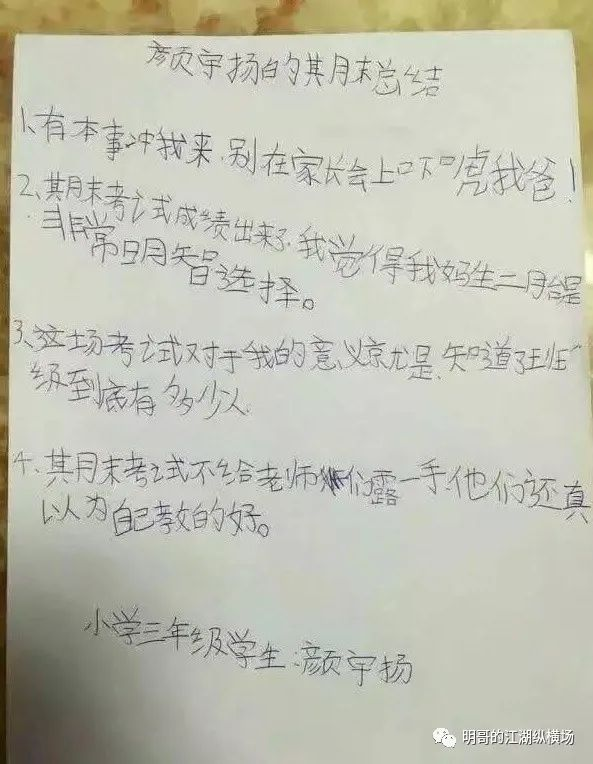 颜宇扬的期末总结
1、有本事冲我来,别在家长会上吓唬我爸!
2、期末考试成绩出来了,我觉得我妈生二胎是
非常明智的选择。
3、这场考试对于我的意义就是,知道了班
级到底有多少人.
4、期末考试不给老师们露一手,他们还真
以为自己教的好。
小学三年级学生:颜宇扬
明哥的江湖纵横场